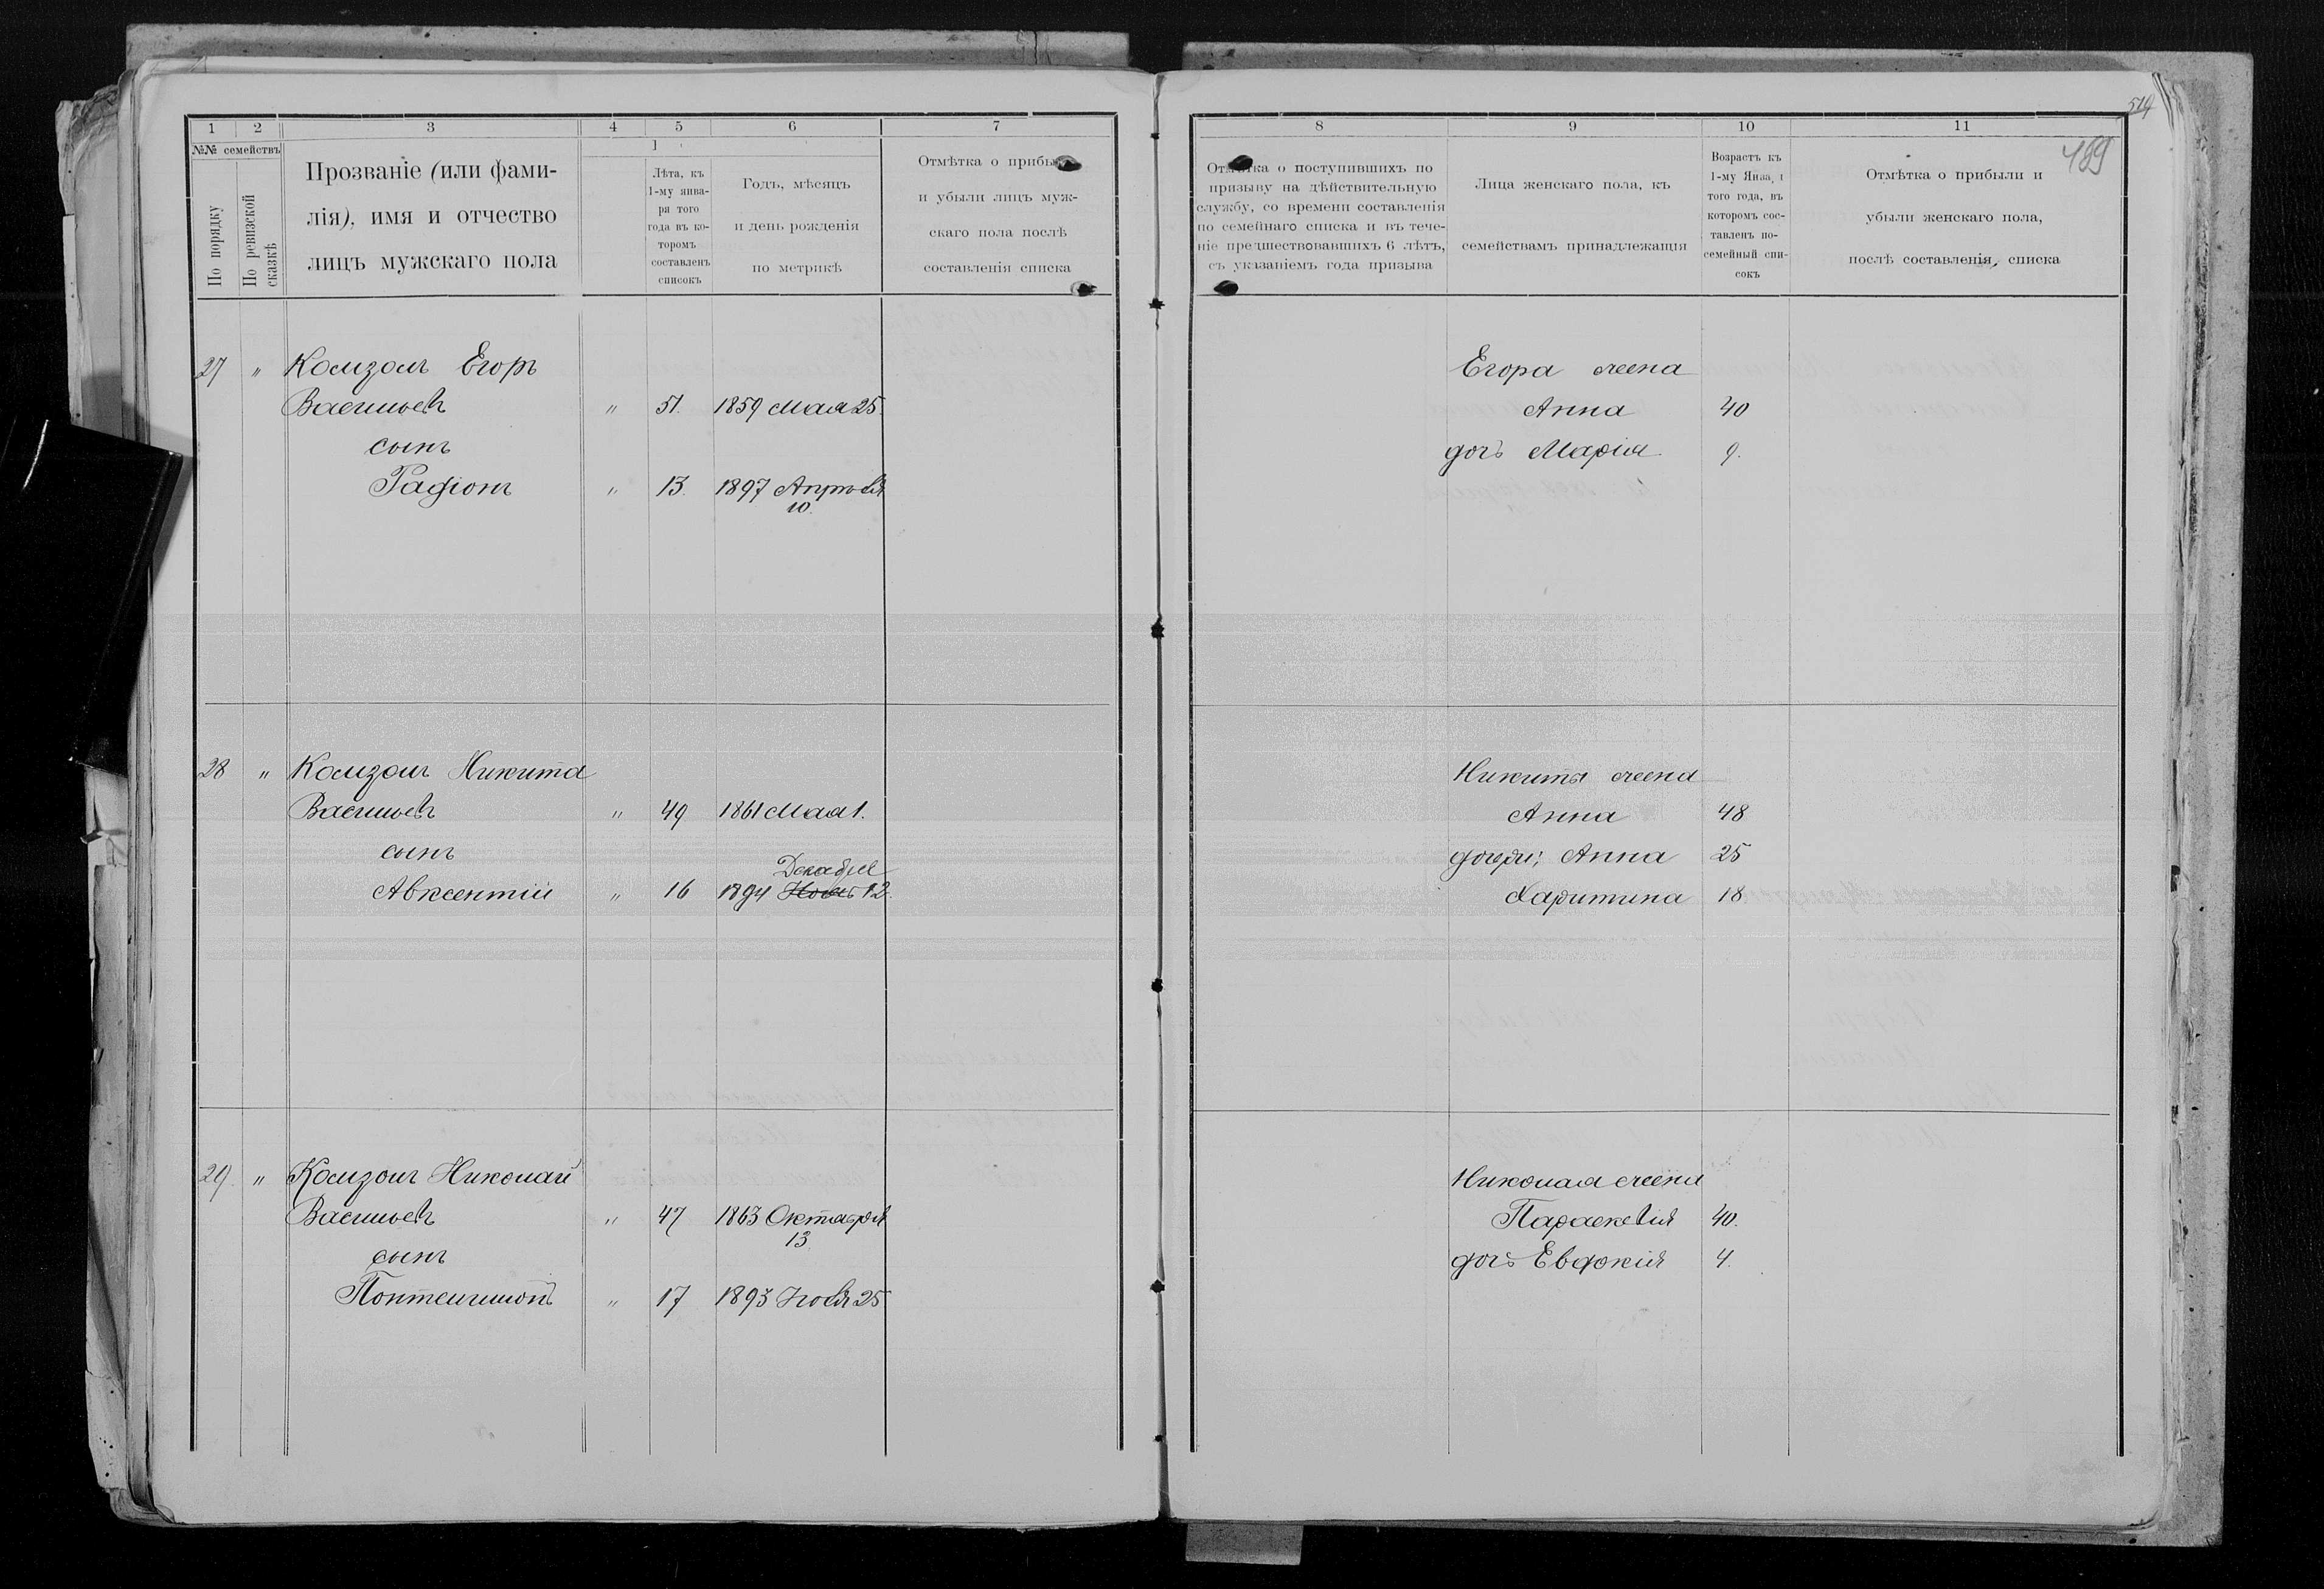 514
469
1 2 3 4 5 6 7
№№ семействъ
По порядку
По ревизской сказкѣ
Прозваніе (или фами-
лія), имя и отчество
лицъ мужскаго пола
Лѣта, къ
1-му янва-
ря того
года въ ко-
торомъ
составленъ
списокъ
Годъ, мѣсяцъ
и день рожденія
по метрикѣ
Отмѣтка о прибыли
и убыли лицъ муж-
скаго пола послѣ
составленія списка
27 " Комзолъ Егоръ
Васильевъ " 51. 1859 Мая 25.
сынъ
Радіонъ " 13. 1897 Апрѣля
10.
28 " Комзолъ Никита
Васильевъ " 49 1861 Мая 1.
сынъ
Декабря
Авксентій " 16 1894 12.
29. " Комзолъ Николай
Васильевъ " 47 1863 Октября
13.
сынъ
" 17 1893 25
8 9 10 11
Отмѣтка о поступившихъ по
призыву на дѣйствительную
службу, со времени составленія
по семейнаго списка и въ тече-
ніе предшествовавшихъ 6 лѣтъ,
съ указаніемъ года призыва
Лица женскаго пола, къ
семействамъ принадлежащія
Возрастъ къ
1-му Янва, я
того года, въ
которомъ сос-
тавленъ по-
семейный спи-
сокъ
Отмѣтка о прибыли и
убыли женскаго пола,
послѣ составленія, списка
Егора жена
Анна 40
дочь Марія 9.
Никиты жена
Анна 48
дочери: Анна 25
Харитина 18
Николая жена
Параскевія 40.
дочь Евдокія 4.